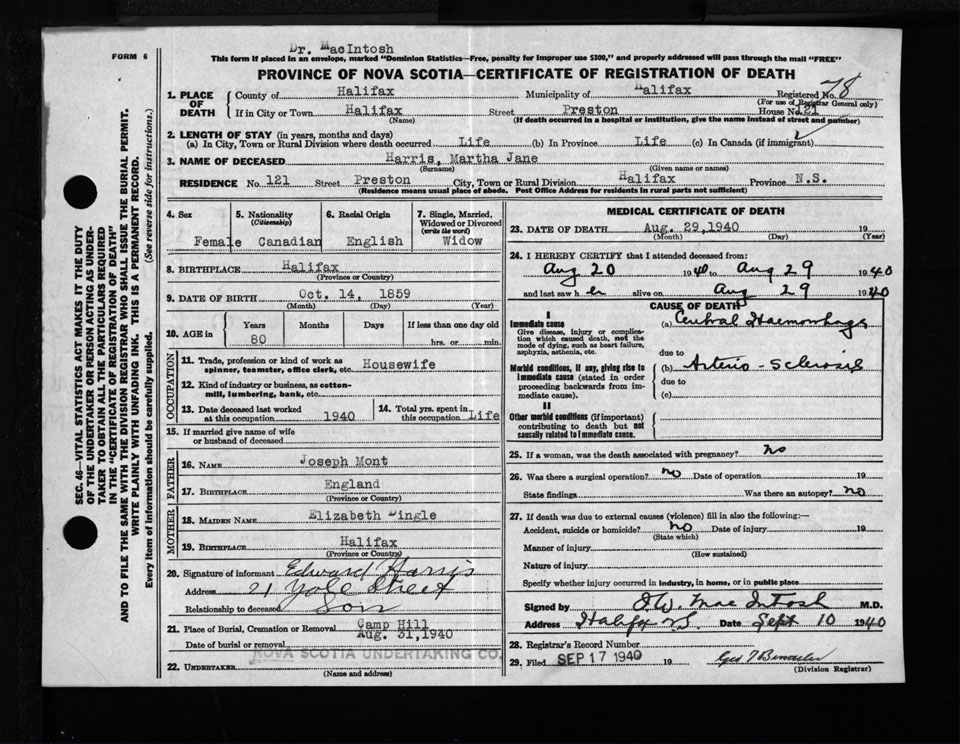 Dr. MacIntosh
FORM 6
This form if placed in an envelope, marked "Dominion Statistics—Free, penalty for improper use $300," and properly addressed will pass through the mail "FREE"
PROVINCE OF NOVA SCOTIA—CERTIFICATE OF REGISTRATION OF DEATH
1. PLACE OF DEATH
County of Halifax Municipality of Halifax Registered No. 78
(For use of Registrar General only)
If in City or Town Halifax Street Preston House No. 121
(Name) (If death occurred in a hospital or institution, give the name instead of street and number)
2. LENGTH OF STAY (in years, months and days)
(a) In City, Town or Rural Division where death occurred Life (b) In Province Life (c) In Canada (if immigrant)
3. NAME OF DECEASED Harris, Martha Jane
(Surname) (Given name or names)
RESIDENCE No. 121 Street Preston City, Town or Rural Division Halifax Province N.S.
(Residence means usual place of abode. Post Office Address for residents in rural parts not sufficient)
4. Sex 5. Nationality (Citizenship) 6. Racial Origin 7. Single, Married, Widowed or Divorced (write the word)
Female Canadian English Widow
8. BIRTHPLACE Halifax
(Province or Country)
9. DATE OF BIRTH Oct. 14, 1859
(Month) (Day) (Year)
10. AGE in Years Months Days If less than one day old
80 hrs. or min.
OCCUPATION
11. Trade, profession or kind of work as spinner, teamster, office clerk, etc. Housewife
12. Kind of industry or business, as cotton-mill, lumbering, bank, etc.
13. Date deceased last worked at this occupation 1940 14. Total yrs. spent in this occupation Life
15. If married give name of wife or husband of deceased
FATHER
16. NAME Joseph Mont
17. BIRTHPLACE England
(Province or Country)
MOTHER
18. MAIDEN NAME Elizabeth Dingle
19. BIRTHPLACE Halifax
(Province or Country)
20. Signature of informant Edward Harris
Address 21 Yale Street
Relationship to deceased Son
21. Place of Burial, Cremation or Removal Camp Hill
Date of burial or removal Aug. 31, 1940
22. UNDERTAKER NOVA SCOTIA UNDERTAKING CO.
(Name and address)
MEDICAL CERTIFICATE OF DEATH
23. DATE OF DEATH Aug. 29, 1940 19
(Month) (Day) (Year)
24. I HEREBY CERTIFY that I attended deceased from:
Aug 20 1940 to Aug 29 1940
and last saw her alive on Aug 29 1940
CAUSE OF DEATH
I
Immediate cause (a) Cerebral Haemorrhage
Give disease, injury or complication which caused death, not the mode of dying, such as heart failure, asphyxia, asthenia, etc.
due to
Morbid conditions, if any, giving rise to immediate cause (stated in order proceeding backwards from immediate cause).
(b) Arterio-Sclerosis
due to
(c)
II
Other morbid conditions (if important) contributing to death but not causally related to immediate cause.
25. If a woman, was the death associated with pregnancy? no
26. Was there a surgical operation? no Date of operation 19
State findings Was there an autopsy? no
27. If death was due to external causes (violence) fill in also the following:—
Accident, suicide or homicide? no Date of injury 19
(State which)
Manner of injury
(How sustained)
Nature of injury
Specify whether injury occurred in industry, in home, or in public place
Signed by D.W. MacIntosh M.D.
Address Halifax NS Date Sept 10 1940
28. Registrar's Record Number
29. Filed SEP 17 1940 19
(Division Registrar)
SEC. 46—VITAL STATISTICS ACT MAKES IT THE DUTY
OF THE UNDERTAKER OR PERSON ACTING AS UNDER-
TAKER TO OBTAIN ALL THE PARTICULARS REQUIRED
IN THE "CERTIFICATE OF REGISTRATION OF DEATH"
AND TO FILE THE SAME WITH THE DIVISION REGISTRAR WHO SHALL ISSUE THE BURIAL PERMIT.
WRITE PLAINLY WITH UNFADING INK. THIS IS A PERMANENT RECORD.
Every item of information should be carefully supplied. (See reverse side for instructions.)